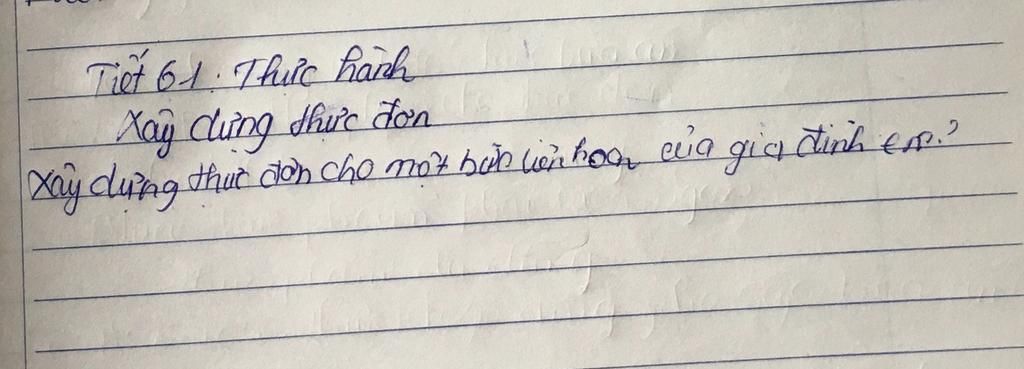 Tiết 61: Thực hành
Xây dựng thực đơn
Xây dựng thực đơn cho một bữa liên hoan của gia đình em?